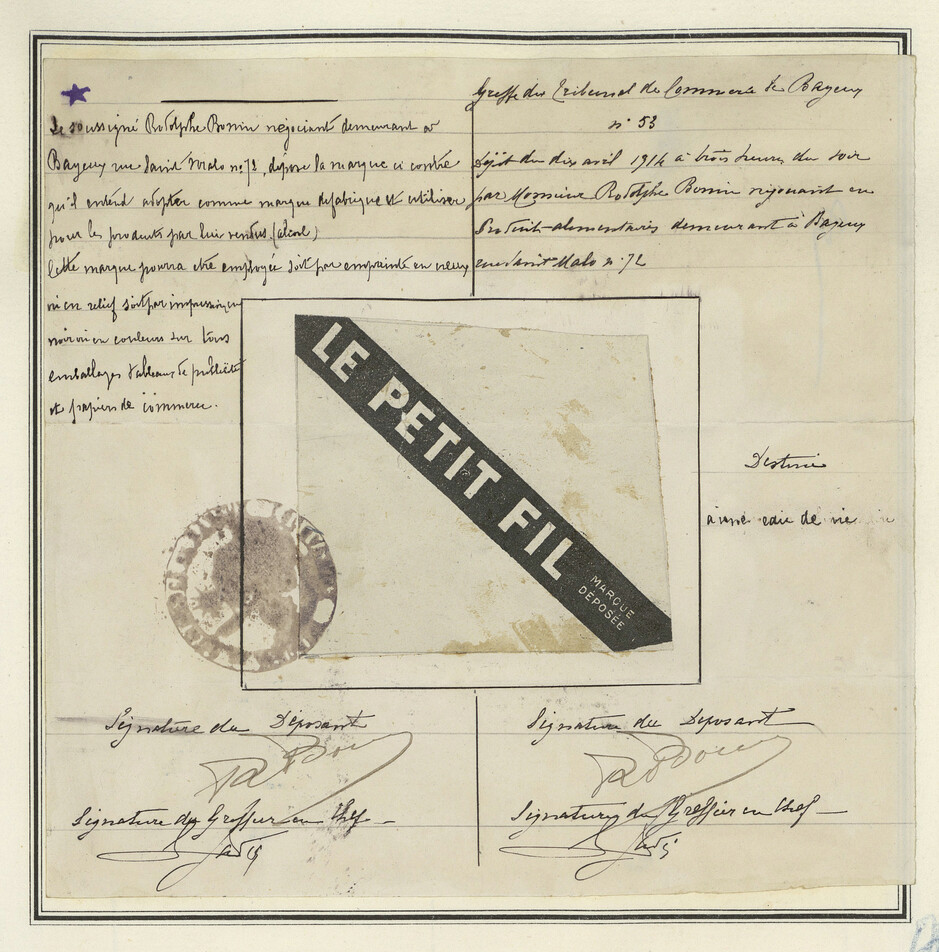 Je soussigné Rodolphe Bonin négociant demeurant à
Bayeux rue Saint Malo n° 72, dépose la marque ci contre
qu'il entend adopter comme marque de fabrique et utiliser
pour les produits par lui vendus. (alcool)
Cette marque pourra être employée soit par empreinte en creux
ou en relief soit par impression en
noir ou en couleurs sur tous
emballages tableaux de publicité
et papiers de commerce.
Greffe du Tribunal de Commerce de Bayeux
n° 53
Dépôt du dix avril 1914 à trois heures du soir
par Monsieur Rodolphe Bonin négociant en
Produits alimentaires demeurant à Bayeux
rue Saint Malo n° 72
LE PETIT FIL
MARQUE
DÉPOSÉE
Destinée
à une eau de vie
Signature du Déposant
Signature du Greffier en Chef
Signature du Déposant
Signature du Greffier en Chef